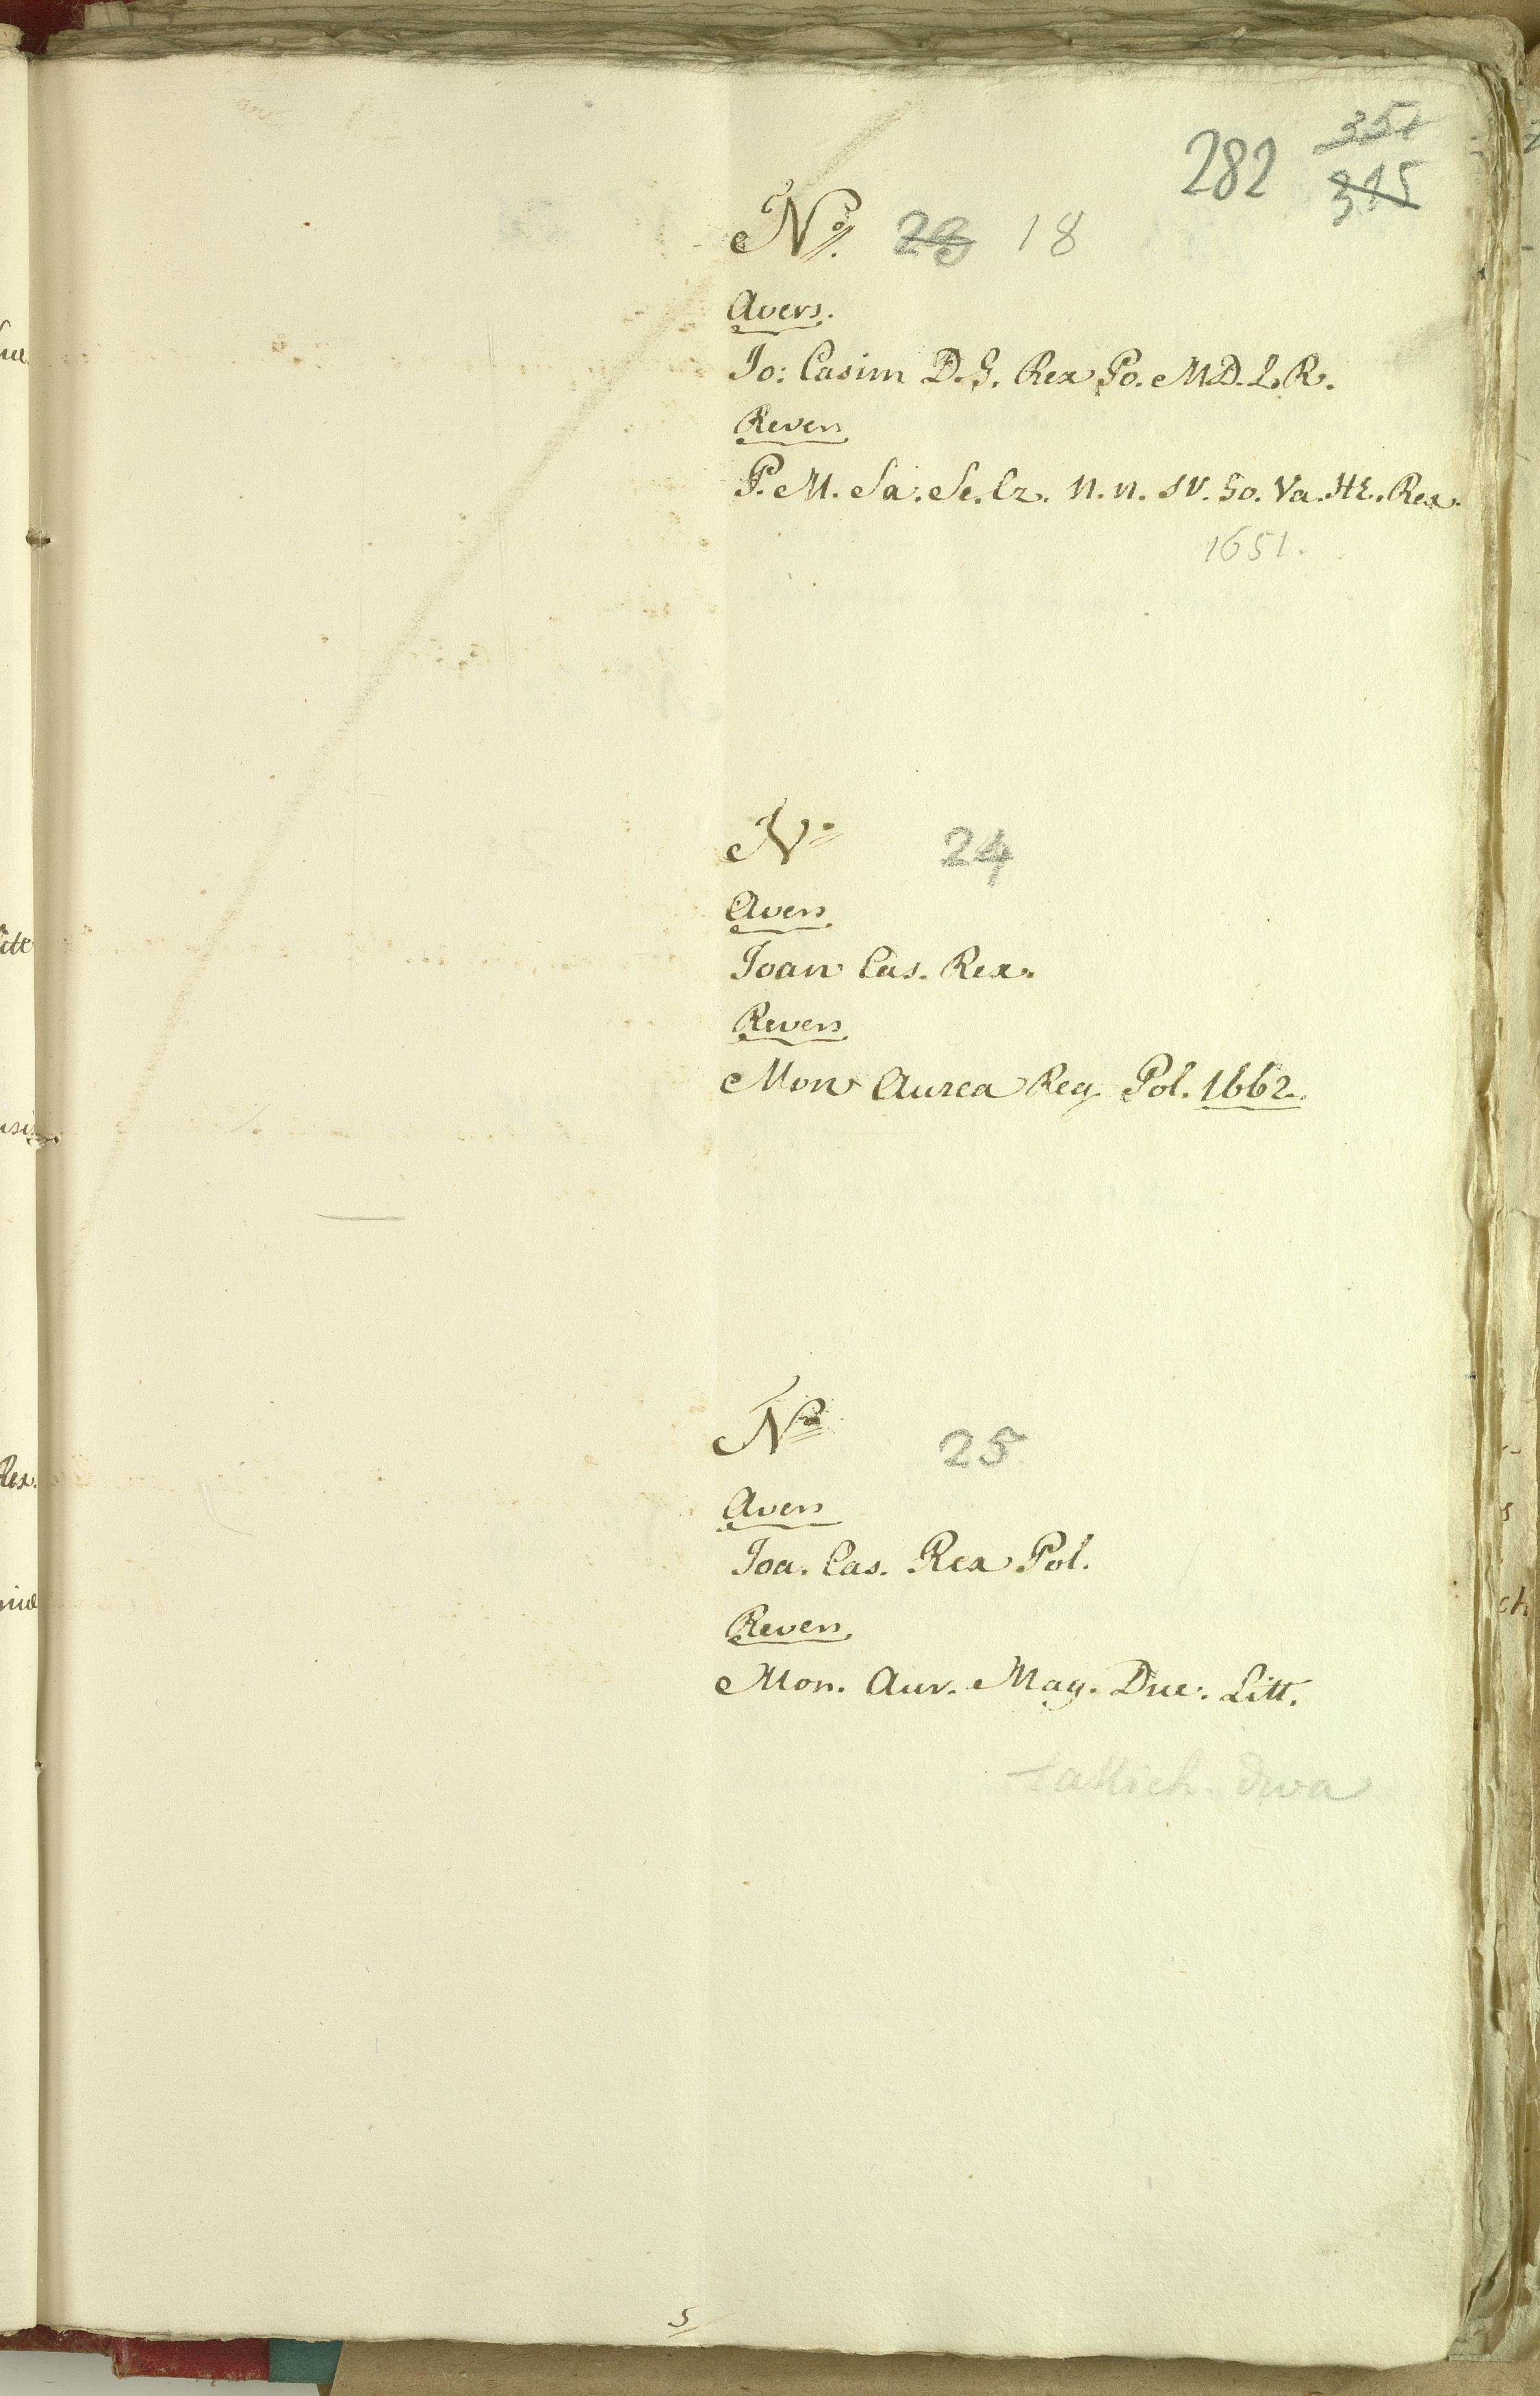 282
315
Nº. 23 18
Avers.
Io: Casim D. G. Rex Po. M.D. L. R.
Revers
P. M. Sa. Se. Cz. N. n. SV. Go. Va. HE. Rex.
1651.
Nº 24
Avers
Ioan Cas. Rex.
Revers
Mon Aurea Reg. Pol. 1662.
Nº 25
Avers
Ioa. Cas. Rex Pol.
Revers
Mon. Aur. Mag. Duc. Litt.
takich dwa
5